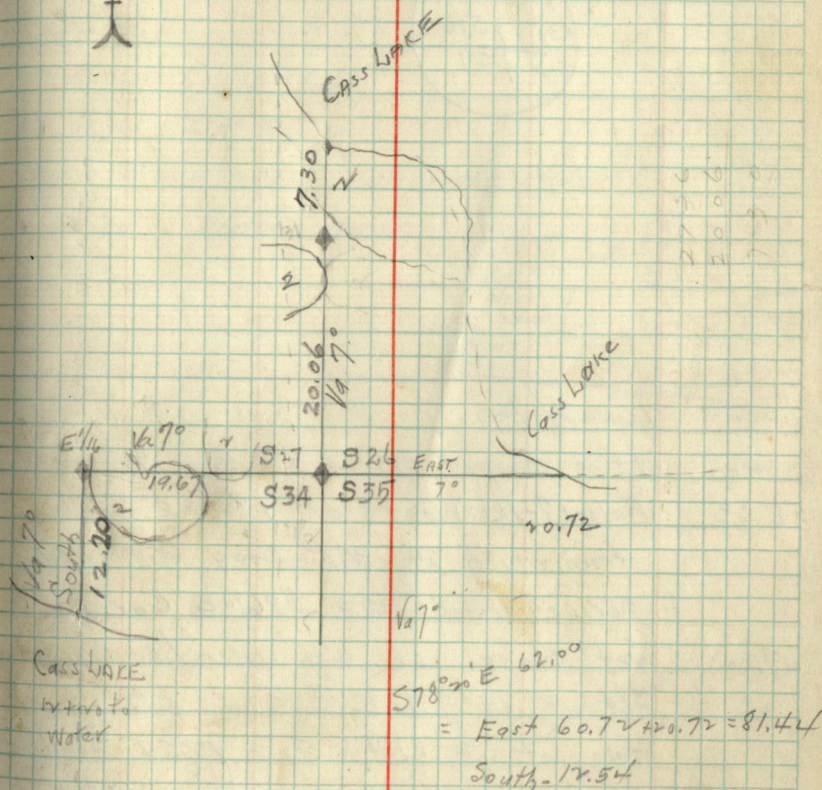 CASS LAKE
7.30
2
2
20.06
Va 7°
27 36
20 06
7 30
Cass Lake
E 1/16
Va 7°
S27
S26
EAST
7°
19.67
S34
S35
20.72
2
Va 7°
South
12.20
Va 7°
Cass LAKE
Water
S78°20'E 62.00
= East 60.72 + 20.72 = 81.44
South - 12.54